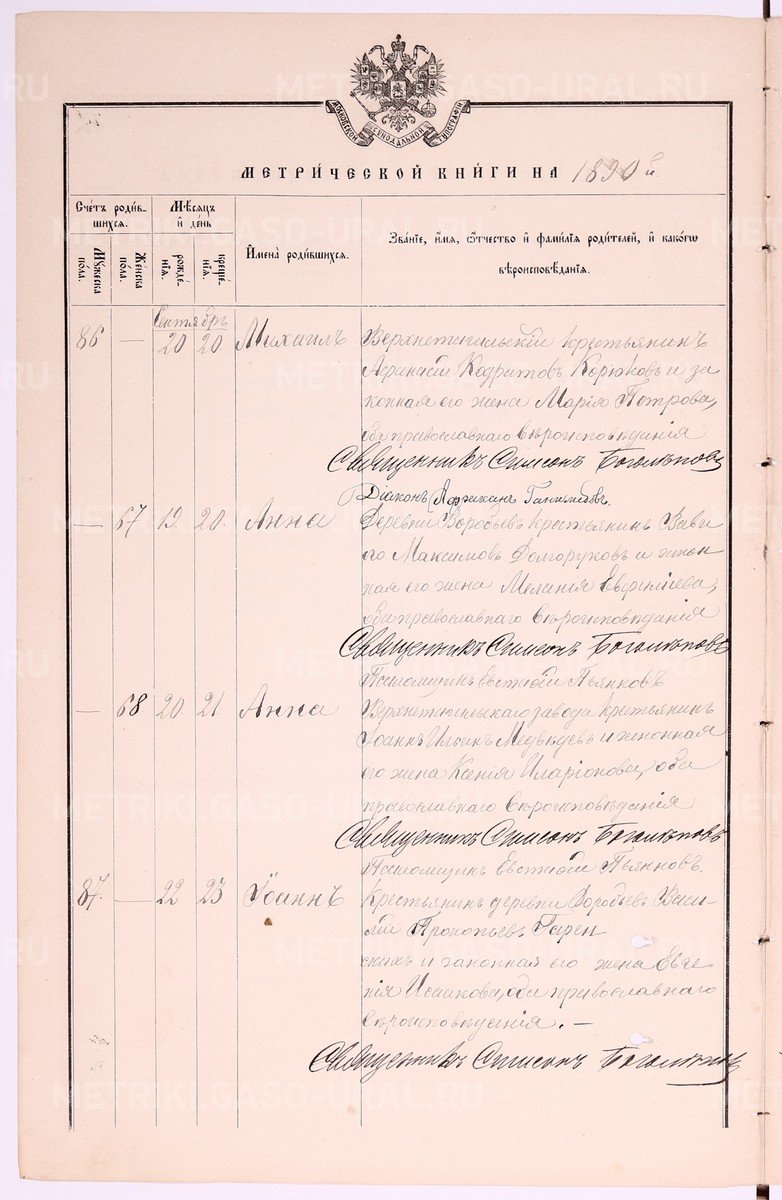 МОСКОВСКОЙ СѴНОДАЛЬНОЙ ТИПОГРАФІИ
МЕТРИ́ЧЕСКОЙ КНИ́ГИ НА 1890 г.
Сче́тъ роди́в-
шихсѧ.
Мѣ́сѧцъ
и҆ де́нь
Мꙋ́жеска
по́ла.
Же́нска
по́ла.
рожде́-
нїѧ.
креще́-
нїѧ.
И҆мена̀ роди́вшихсѧ.
Зва́нїе, и҆́мѧ, ѻ҆́тчество и҆ фами́лїѧ роди́телей, и҆ како́гѡ
вѣроисповѣ́данїѧ.
Сентябрь
86 — 20 20 Михаилъ Верхнетагильскій крестьянинъ
Афанасій Кодратовъ Корюковъ и за
конная его жена Марія Петрова,
оба православнаго вѣроисповѣданія
Священникъ Симеонъ Боголѣповъ
Діаконъ
— 67 19. 20. Анна Деревни Воробьев крестьянинъ Савы
Максимовъ Долгоруковъ и закон
ная его жена Меланія Евфиміева,
оба православнаго вѣроисповѣданія
Священникъ Симеонъ Боголѣповъ
Псаломщикъ Евгеній Пьянковъ
— 68 20 21. Анна Верхнетагильскаго завода крестьянинъ
Іоаннъ Ильинъ Медвѣдевъ и законная
его жена Ксенія Иларіонова, оба
православнаго вѣроисповѣданія
Священникъ Симеонъ Боголѣповъ
Псаломщикъ Евгеній Пьянковъ.
87. — 22 23 Іоаннъ Крестьянинъ деревни Воробьев Васи
лій Прокопьевъ Гарен
скихъ и законная его жена Евге
нія Исаакова, оба православнаго
вѣроисповѣданія. —
Священникъ Симеонъ Боголѣповъ
METRIKI.GASO-URAL.RU